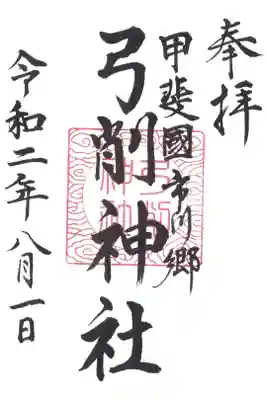 奉拝
甲斐國市川郷
弓削神社
令和二年八月一日